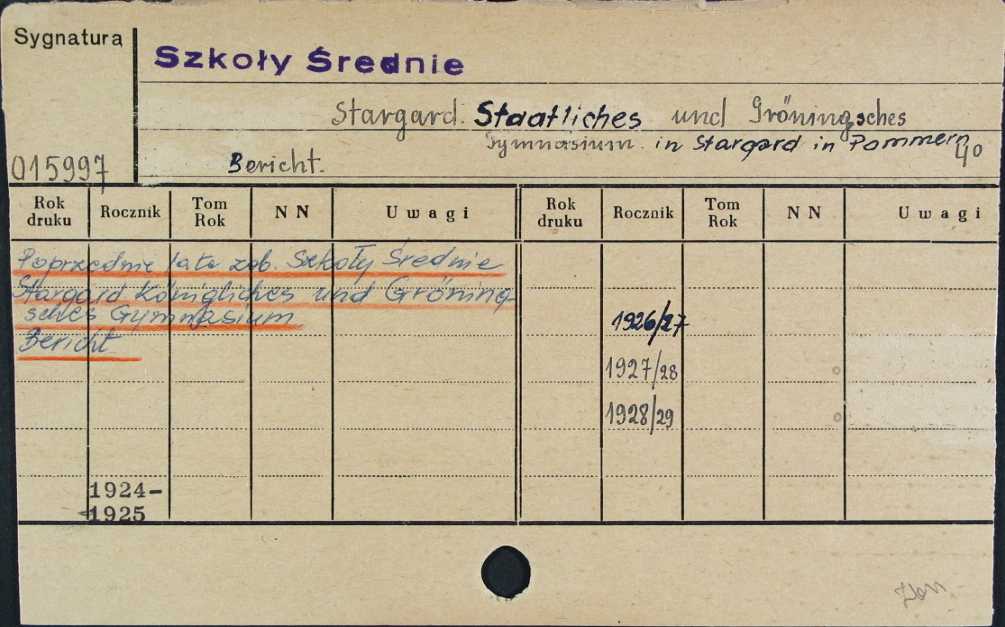 Sygnatura
Szkoły Średnie
Stargard. Staatliches und Gröningsches
Gymnasium in Stargard in Pommern
015997 Bericht. 40
Rok druku Rocznik Tom Rok NN Uwagi Rok druku Rocznik Tom Rok NN Uwagi
Poprzednie lata zob. Szkoły Średnie
Stargard Königliches und Gröning
sches Gymnasium
1926/27
Bericht
1927/28
1928/29
1924-
1925